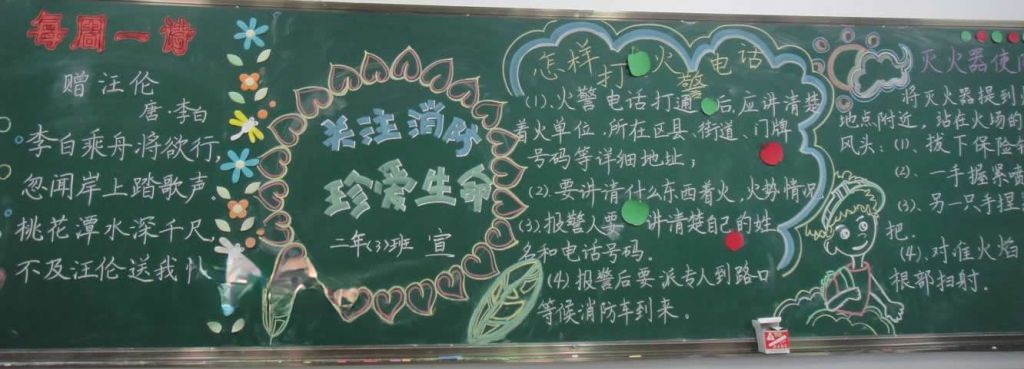 每周一诗
赠汪伦
唐:李白
李白乘舟将欲行,
忽闻岸上踏歌声
桃花潭水深千尺,
不及汪伦送我
关注消防
珍爱生命
二年(3)班 宣
怎样打火警电话
(1).火警电话打通后,应讲清楚
着火单位、所在区县、街道、门牌
号码等详细地址;
(2).要讲清什么东西着火,火势情况
(3).报警人要讲清楚自己的姓
名和电话号码.
(4)报警后要派专人到路口
等候消防车到来。
灭火器使
将灭火器提到
地点附近,站在火场的
风头:(1)、拔下保险
(2)、一手握
(3)、另一只手捏
把.
(4)、对准火焰
根部扫射.